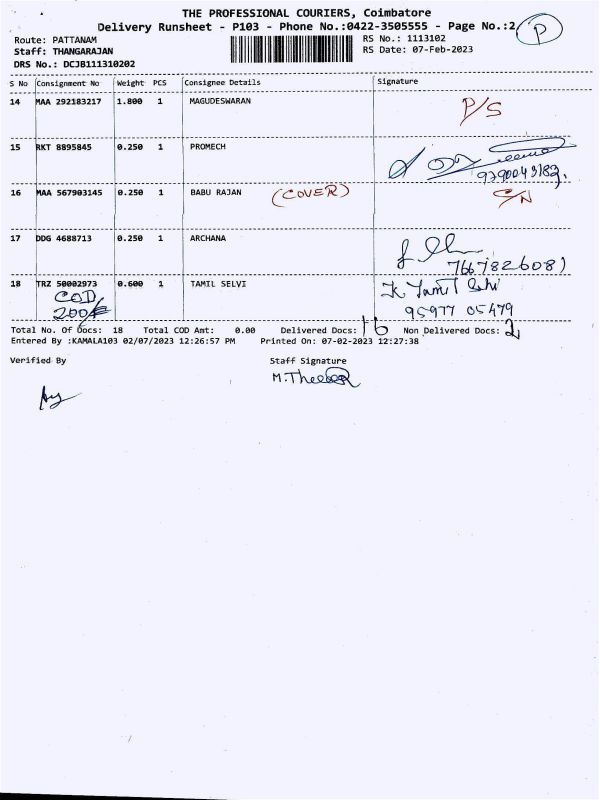 THE PROFESSIONAL COURIERS, Coimbatore
Delivery Runsheet - P103 - Phone No.:0422-3505555 - Page No.:2
P
Route: PATTANAM
RS No.: 1113102
Staff: THANGARAJAN
RS Date: 07-Feb-2023
DRS No.: DCJB111310202
S No Consignment No Weight PCS Consignee Details Signature
14 MAA 292183217 1.800 1 MAGUDESWARAN P/S
15 RKT 8895845 0.250 1 PROMECH
9790049182.
16 MAA 567903145 0.250 1 BABU RAJAN (COVER) C/N
17 DDG 4688713 0.250 1 ARCHANA
7667826081
18 TRZ 50002973 0.600 1 TAMIL SELVI K Tamil Selvi
COD 95977 05479
200/-
Total No. Of Docs: 18 Total COD Amt: 0.00 Delivered Docs: 16 Non Delivered Docs: 2
Entered By :KAMALA103 02/07/2023 12:26:57 PM Printed On: 07-02-2023 12:27:38
Verified By Staff Signature